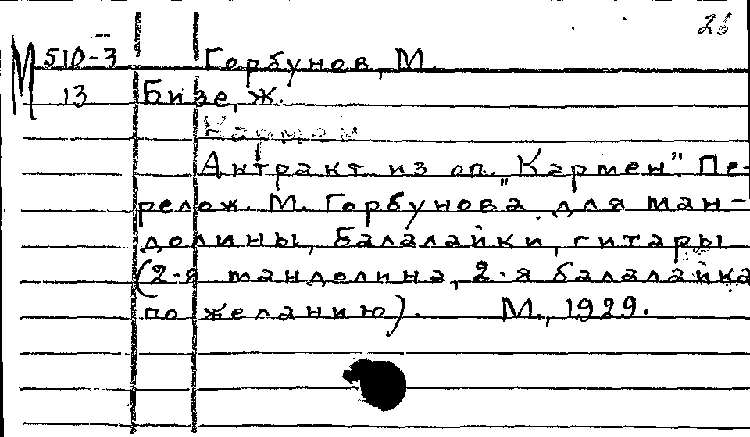 26
М 510-3 Горбунов, М.
13 Бизе, Ж.
Кармен
Антракт из оп. "Кармен". Пе-
релож. М. Горбунова для ман-
долины, балалайки, гитары
(2-я мандолина, 2-я балалайка
по желанию). М., 1929.